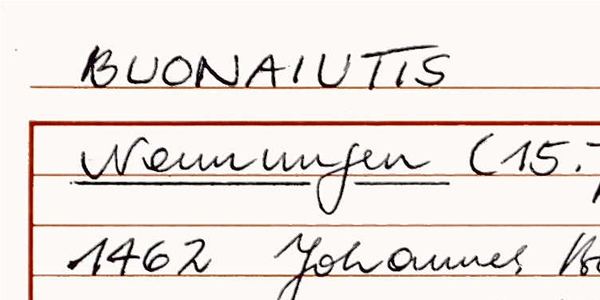 BUONAIUTIS
Nennungen (15.
1462 Johannes